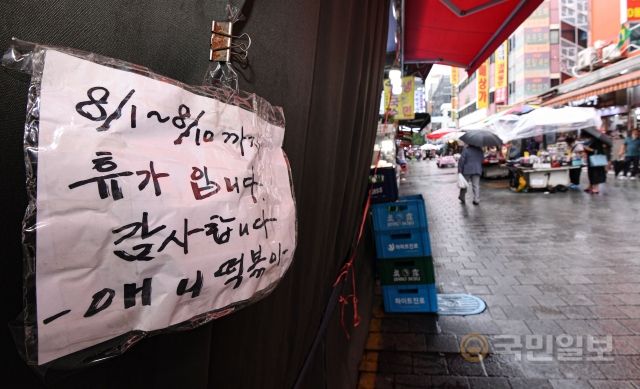 8/1~8/10 까지
휴가 입니다
감사합니다
- 애니 떡볶이 -
하이트진로
하이트진로
국민일보